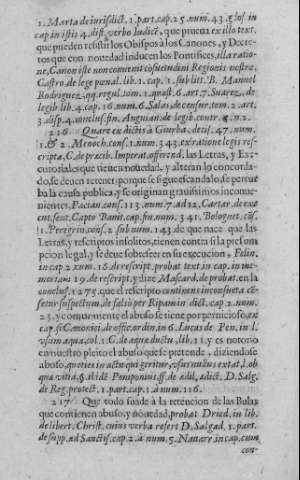 1. Marta de iurisdict. 1. part. cap. 25. num. 43. glos in
cap in istis 4. dist. verbo Iudicẽ, que prueua ex illo text.
que pueden resistir los Obispos à los Canones, y Decre-
tos que con nouedad inducen los Pontifices, illa ratio-
ne, Canon iste non conuenit cõsuetudini Regionis nostræ,
Castro de lege penal. lib. 1. cap. 1. sub litt. B. Manuel
Rodriguez, qq. regul. tom. 1. quæst. 6. art. 7. Suarez, de
legib. lib. 4. cap. 16. num. 6. Salas de censur. tom. 2. art.
3. disp. 4. conclus. fin. Anguian. de legib. contr. 2. n. 2.
216. Quare ex dictis à Giurba, decis. 47. num.
1. & 2. Menoch. cons. 1. num. 343. ex ratione legis res-
cripta, C. de præcib. Imperat. offerend. las Letras, y Exe-
cutoriales que tienen nouedad, y alteran lo concorda-
do, se deuen retener, porque se sigue escandalo, se pertur
ba la causa publica, y se originan grauissimos inconue-
nientes, Pacian. cons. 113. num. 7. ad 12. Cartar. de exe
cut. sent. Capto Banit. cap. fin. num. 341. Bolognet. cõs.
1. Peregrin. cons. 2. sub num. 143. de que nace que las
Letras, y rescriptos insolitos, tienen contra sì la presum
pcion legal, y se deue sobreseer en su execucion, Felin.
in cap. 2. num. 16. de rescript. probat text. in cap. in me-
moriam 19. de rescript. y dize Mascard. de probat. en la
conclus. 1275. que el rescripto continens inconsueta cẽ-
setur suspectum, de falso per Ripam in dict. cap. 2. num.
23. y comunmente el abuso se tiene por pernicioso, ex
cap. si Canonici, de offic. ordin. in 6. Lucas de Pen. in l.
vsum aquæ, col. 1. C. de aquæ ductu, lib. 11. y es notorio
en nuestro pleito el abuso que se pretende, diziendose
abuso, quoties in actu qui geritur, vsus nullus extat, l. ob
quæ vitia, §. si idẽ Pomponius, ff. de ædil. ædict. D. Salg.
de Reg. protect. 1. part. cap. 1. à num. 116.
217. Que todo suade à la retencion de las Bulas
que contienen abuso, y nouedad, probat Dried. in lib.
de libert. Christ. cuius verba refert D. Salgad. 1. part.
de supp. ad Sanctiss. cap. 2. à num. 5. Nauarr. in cap. cum
con-